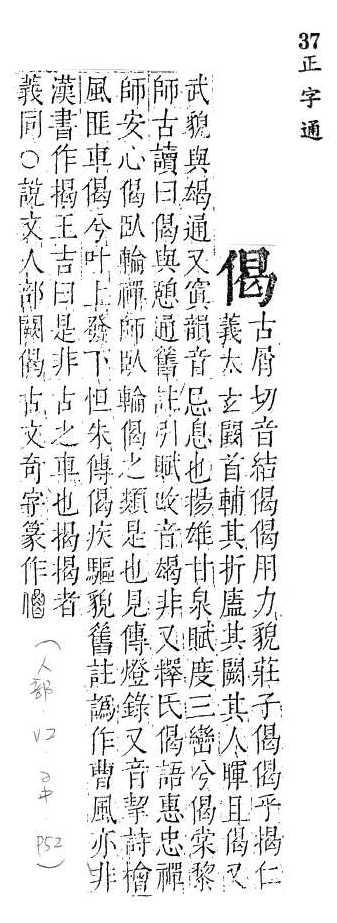 37 正字通
偈
古屑切音結偈偈用力貌莊子偈偈乎揭仁
義太玄闕首輔其折廅其闕其人暉且偈又
武貌與朅通又寘韻音忌息也揚雄甘泉賦度三巒兮偈棠黎
師古讀曰偈與憩通舊註引賦改音朅非又釋氏偈語惠忠禪
師安心偈臥輪禪師臥輪偈之類是也見傳燈錄又音挈詩檜
風匪車偈兮叶上發下怛朱傳偈疾驅貌舊註譌作曹風亦非
漢書作揭王吉曰是非古之車也揭揭者
義同○說文人部闕偈古文奇字篆作
(人部 P52)